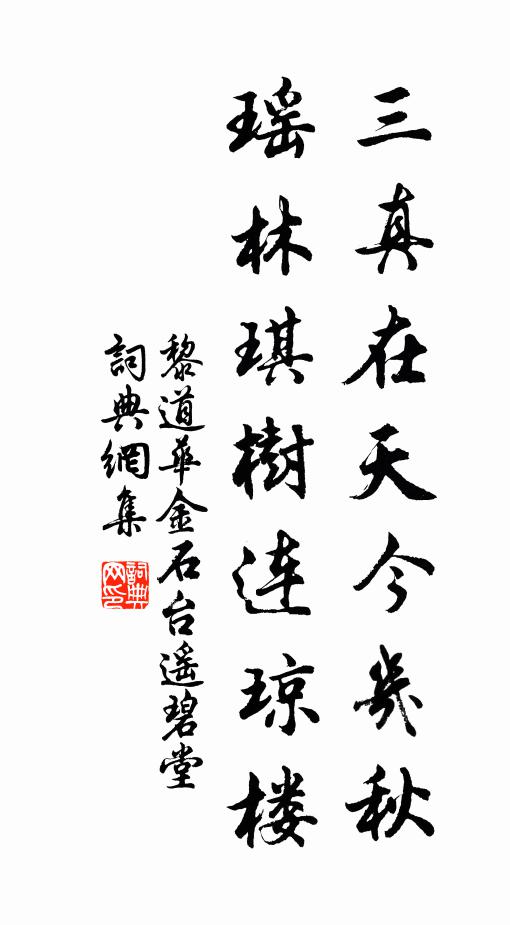 三真在天今几秋
瑶林琪樹连琼楼
黎道華金石台遥碧堂
詞典網集
詞典网印